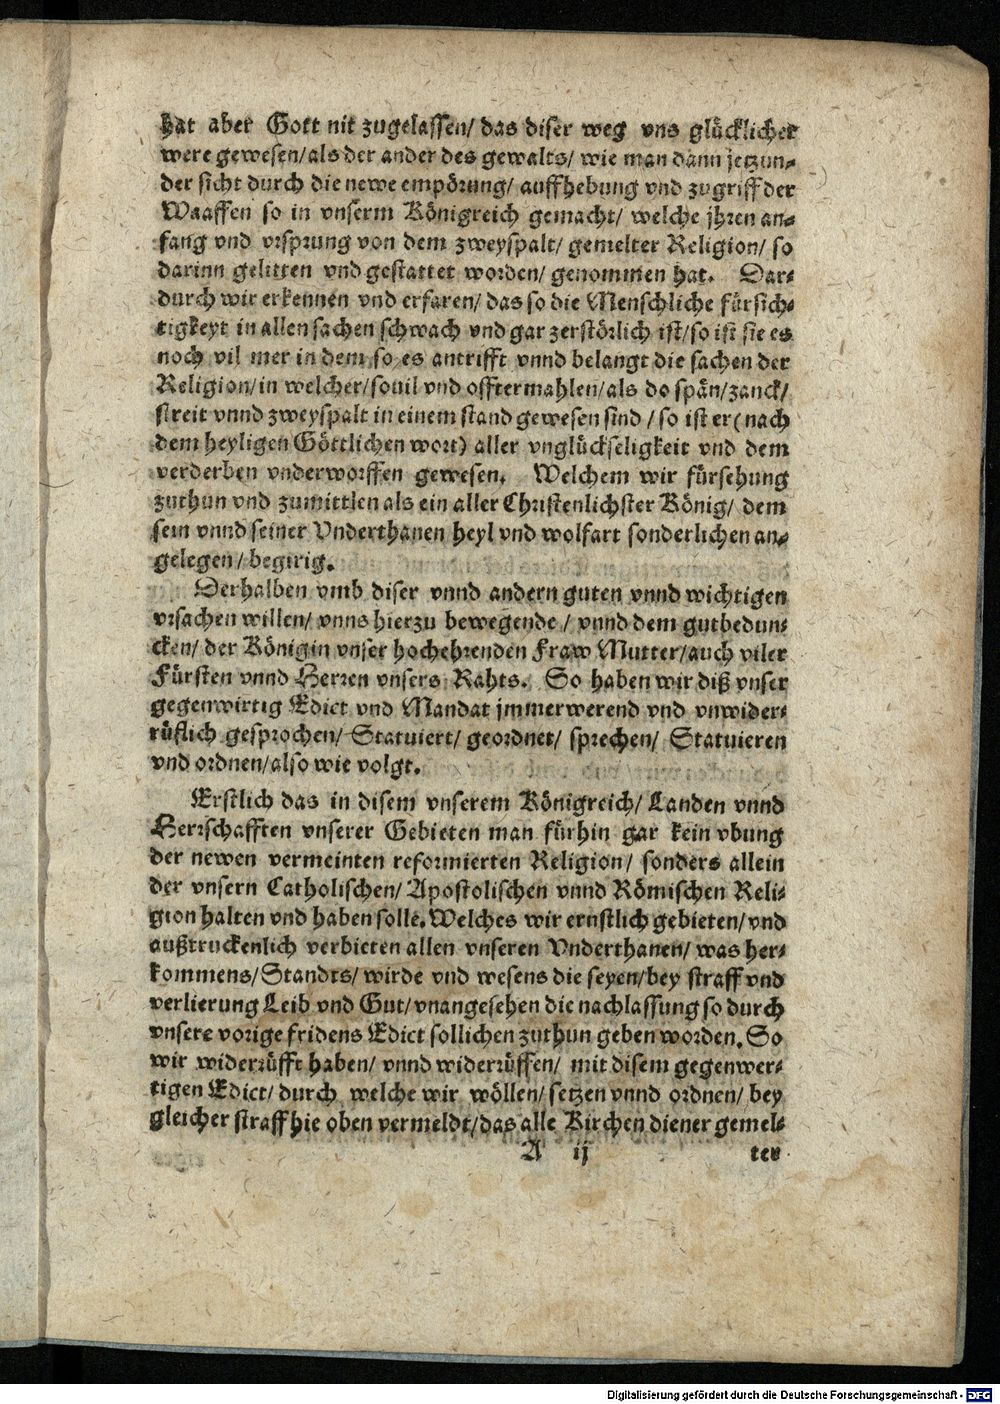 hat aber Gott nit zugelassen/ das diser weg vns glücklicher
were gewesen/ als der ander des gewalts/ wie man dann jetzun-
der sicht durch die newe empörung/ auffhebung vnd zugriff der
Waaffen so in vnserm Königreich gemacht/ welche jhren an-
fang vnd vrsprung von dem zweyspalt/ gemelter Religion/ so
darinn gelitten vnd gestattet worden/ genommen hat. Dar-
durch wir erkennen vnd erfaren/ das so die Menschliche fürsich-
tigkeyt in allen sachen schwach vnd gar zerstörlich ist/ so ist sie es
noch vil mer in dem so es antrifft vnnd belangt die sachen der
Religion/ in welcher/ souil vnd offtermahlen/ als do spän/ zanck/
streit vnnd zweyspalt in einem stand gewesen sind / so ist er (nach
dem heyligen Göttlichen wort) aller vnglückseligkeit vnd dem
verderben vnderworffen gewesen. Welchem wir fürsehung
zuthun vnd zumittlen als ein aller Christenlichster König/ dem
sein vnnd seiner Vnderthanen heyl vnd wolfart sonderlichen an-
gelegen / begirig.
Derhalben vmb diser vnnd andern guten vnnd wichtigen
vrsachen willen/ vnns hierzu bewegende / vnnd dem gutbedun-
cken/ der Königin vnser hochehrenden Fraw Mutter/ auch viler
Fürsten vnnd Herren vnsers Rahts. So haben wir diß vnser
gegenwirtig Edict vnd Mandat jmmerwerend vnd vnwider-
rüflich gesprochen/ Statuiert/ geordnet/ sprechen/ Statuieren
vnd ordnen/ also wie volgt.
Erstlich das in disem vnserem Königreich/ Landen vnnd
Herrschafften vnserer Gebieten man fürhin gar kein vbung
der newen vermeinten reformierten Religion/ sonders allein
der vnsern Catholischen/ Apostolischen vnnd Römischen Reli-
gion halten vnd haben solle. Welches wir ernstlich gebieten/ vnd
außtruckenlich verbieten allen vnseren Vnderthanen/ was her-
kommens/ Standts/ wirde vnd wesens die seyen/ bey straff vnd
verlierung Leib vnd Gut/ vnangesehen die nachlassung so durch
vnsere vorige fridens Edict sollichen zuthun geben worden. So
wir widerrüfft haben/ vnnd widerrüffen/ mit disem gegenwer-
tigen Edict/ durch welche wir wöllen/ setzen vnnd ordnen/ bey
gleicher straff hie oben vermeldt/ das alle Kirchen diener gemel-
A ij ter
Digitalisierung gefördert durch die Deutsche Forschungsgemeinschaft - DFG